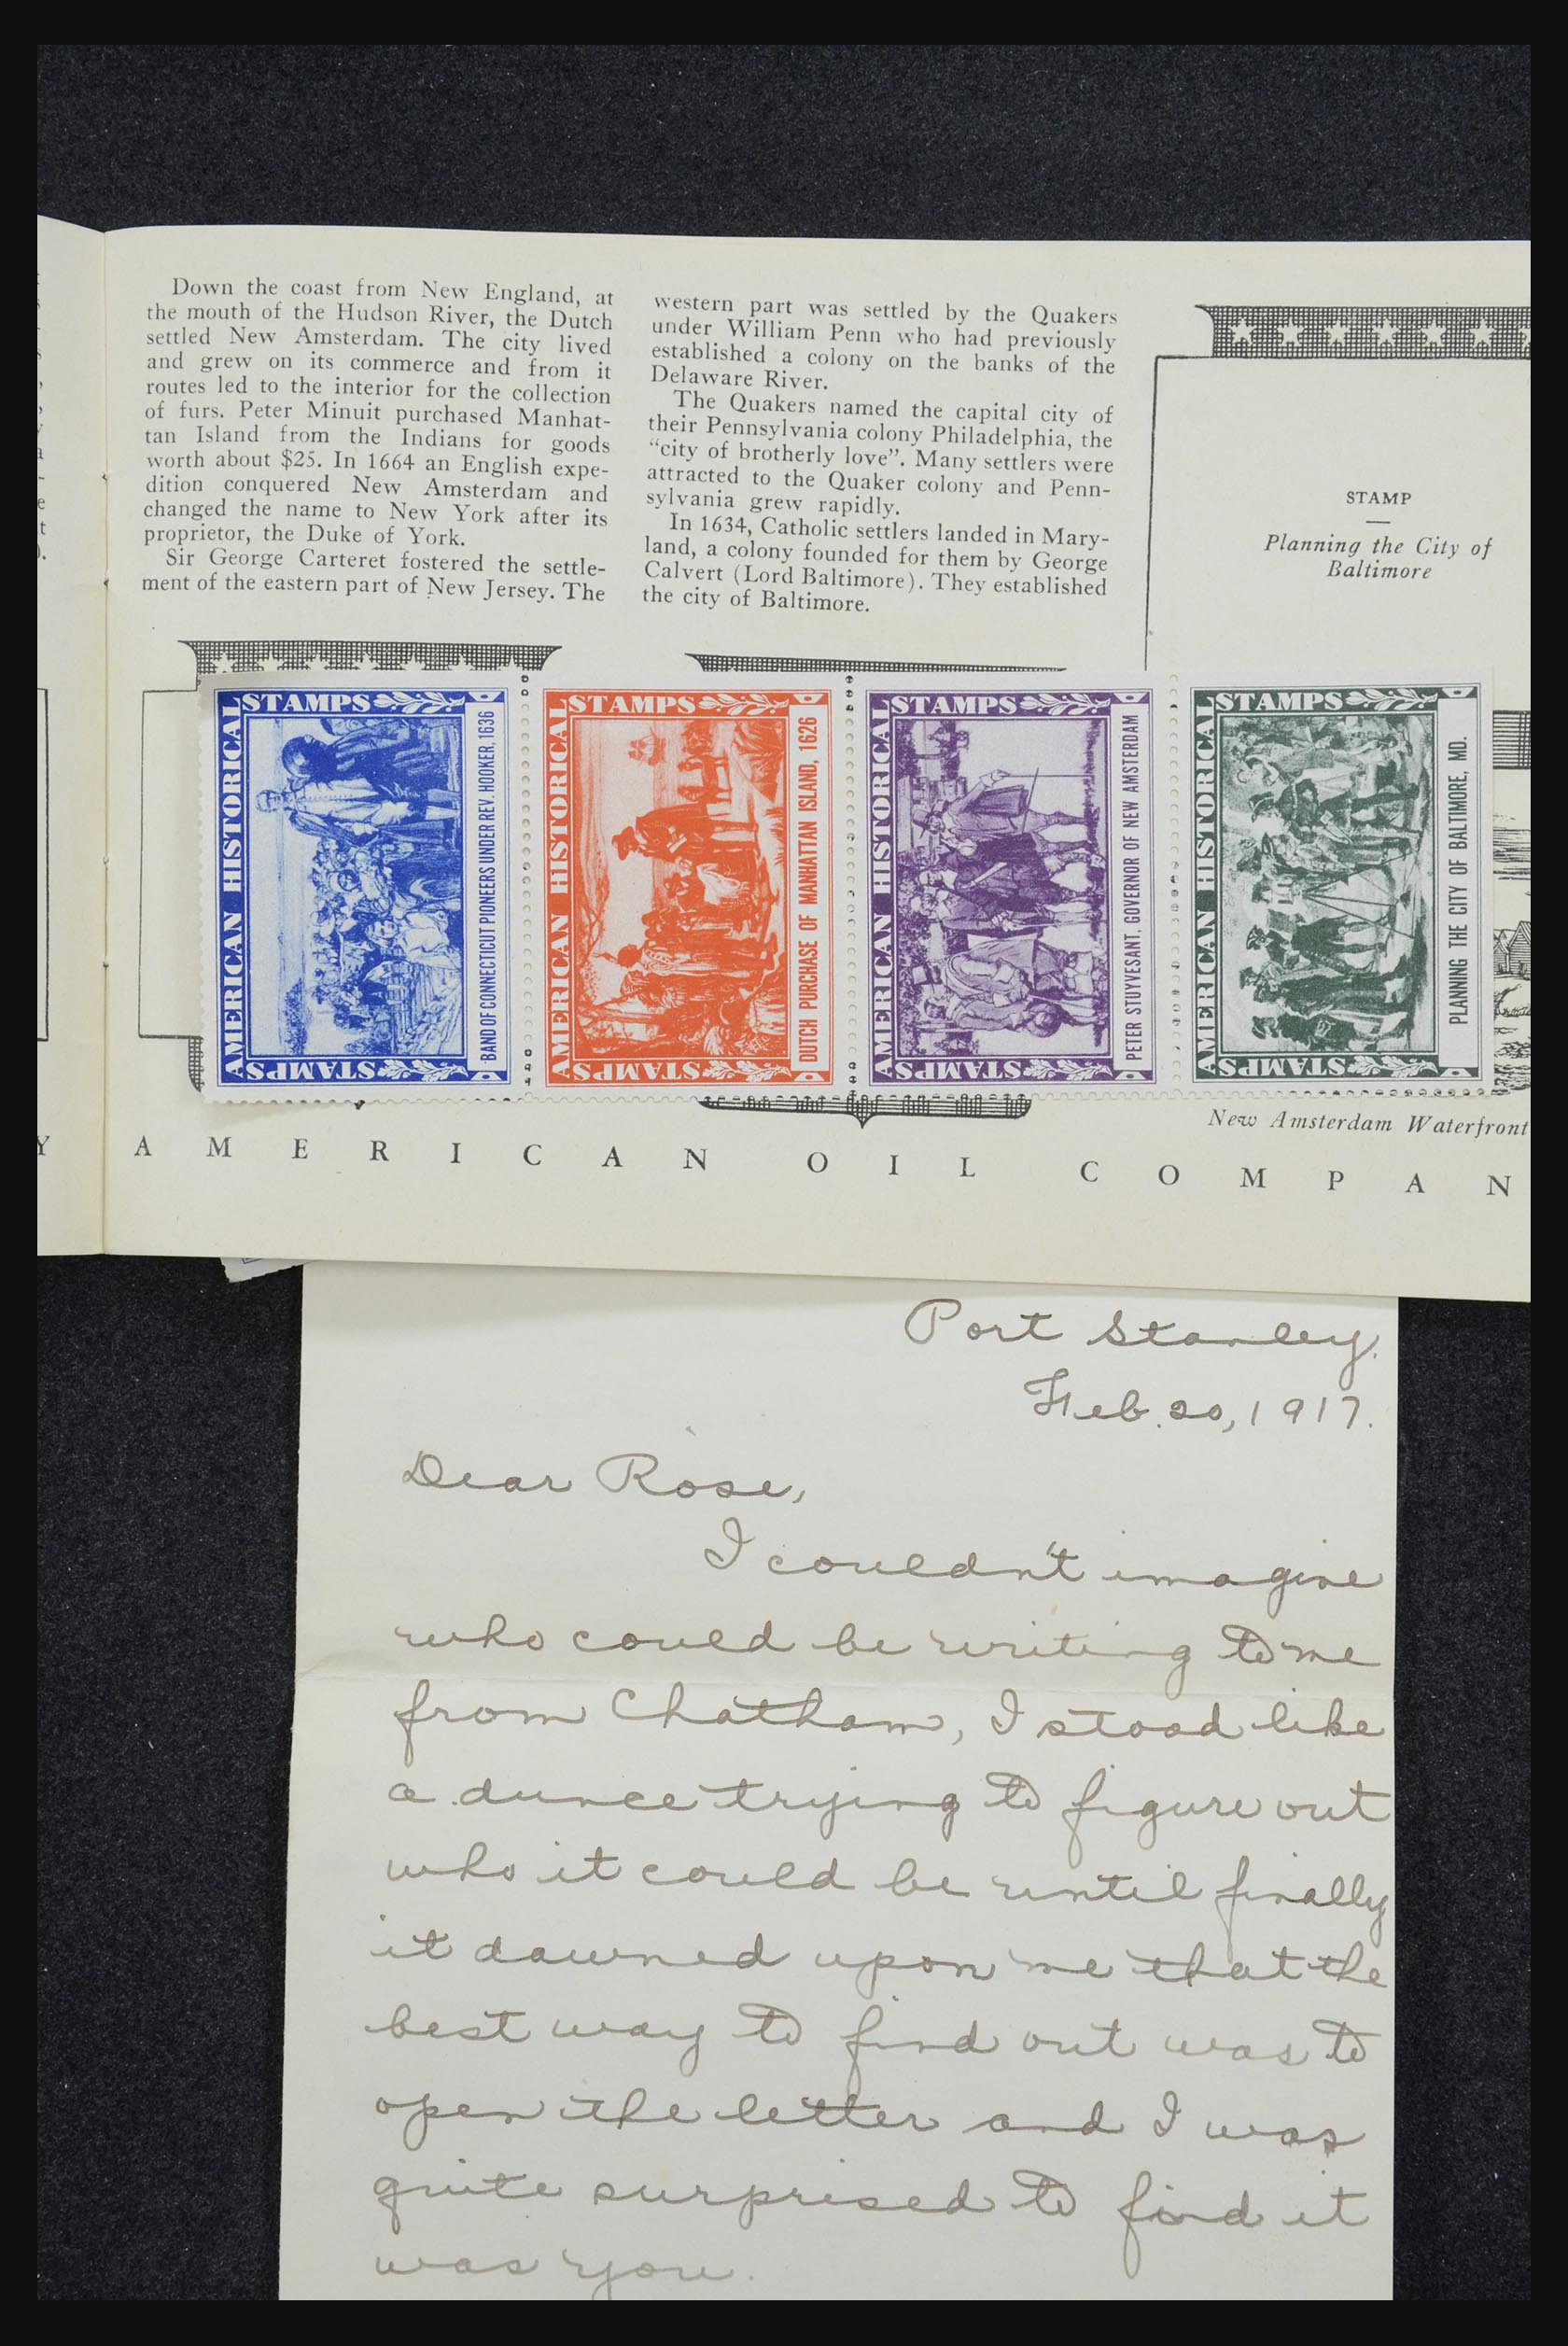 Down the coast from New England, at
the mouth of the Hudson River, the Dutch
settled New Amsterdam. The city lived
and grew on its commerce and from it
routes led to the interior for the collection
of furs. Peter Minuit purchased Manhat-
tan Island from the Indians for goods
worth about $25. In 1664 an English expe-
dition conquered New Amsterdam and
changed the name to New York after its
proprietor, the Duke of York.
Sir George Carteret fostered the settle-
ment of the eastern part of New Jersey. The
western part was settled by the Quakers
under William Penn who had previously
established a colony on the banks of the
Delaware River.
The Quakers named the capital city of
their Pennsylvania colony Philadelphia, the
“city of brotherly love”. Many settlers were
attracted to the Quaker colony and Penn-
sylvania grew rapidly.
In 1634, Catholic settlers landed in Mary-
land, a colony founded for them by George
Calvert (Lord Baltimore). They established
the city of Baltimore.
STAMP
Planning the City of
Baltimore
AMERICAN HISTORICAL
STAMPS
STAMPS
BAND OF CONNECTICUT PIONEERS UNDER REV. HOOKER, 1636
AMERICAN HISTORICAL
STAMPS
STAMPS
DUTCH PURCHASE OF MANHATTAN ISLAND, 1626
AMERICAN HISTORICAL
STAMPS
STAMPS
PETER STUYVESANT, GOVERNOR OF NEW AMSTERDAM
AMERICAN HISTORICAL
STAMPS
STAMPS
PLANNING THE CITY OF BALTIMORE, MD.
New Amsterdam Waterfront
Y AMERICAN OIL COMPAN
Port Stanley.
Feb. 20, 1917.
Dear Rose,
I couldn't imagine
who could be writing to me
from Chatham, I stood like
a dunce trying to figure out
who it could be until finally
it dawned upon me that the
best way to find out was to
open the letter and I was
quite surprised to find it
was you.